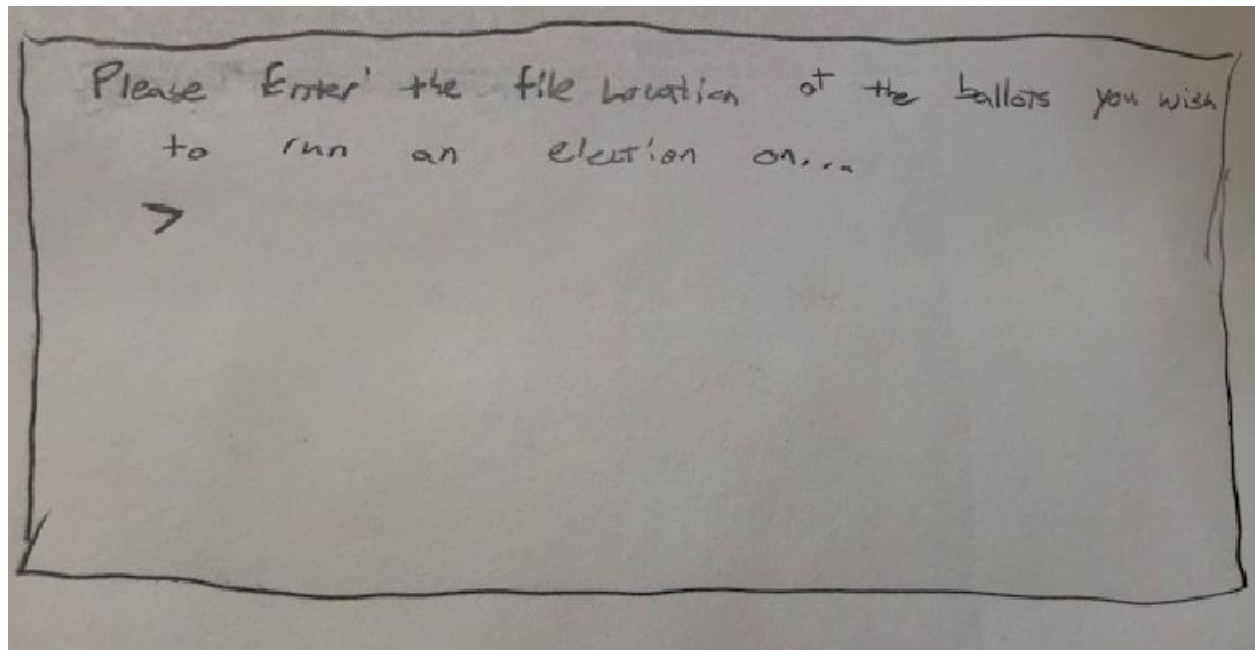 Please Enter the file Location of the ballots you wish
to run an election on...
>